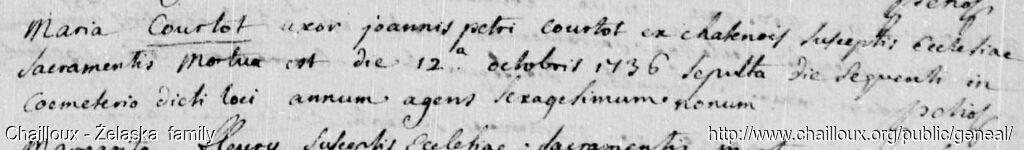 petiot
Maria Courtot uxor joannis petri courtot ex chatenois susceptis Ecclesiae
sacramentis mortua est die 12.a octobris 1736 sepulta die sequenti in
Coemeterio dicti loci annum agens sexagesimum nonum
petiot
Chailloux - Żelaska family
http://www.chailloux.org/public/geneal/
fleury susceptis Ecclesiae sacramentis